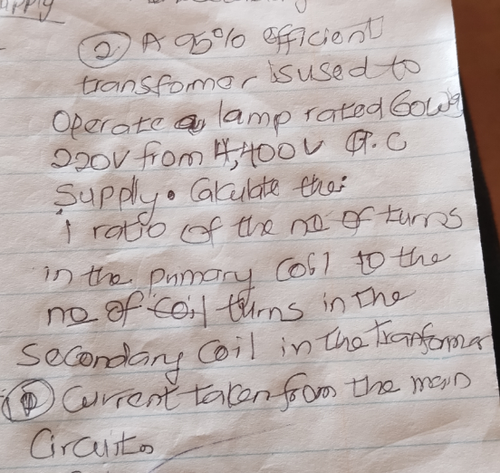 ② A 95% efficient
transformer is used to
operate a lamp rated 60W,
220V from 4,400V A.C
Supply. Calculate the:
i ratio of the no of turns
in the primary coil to the
no of coil turns in the
secondary coil in the Tranformer
(ii) Current taken from the main
Circuit.